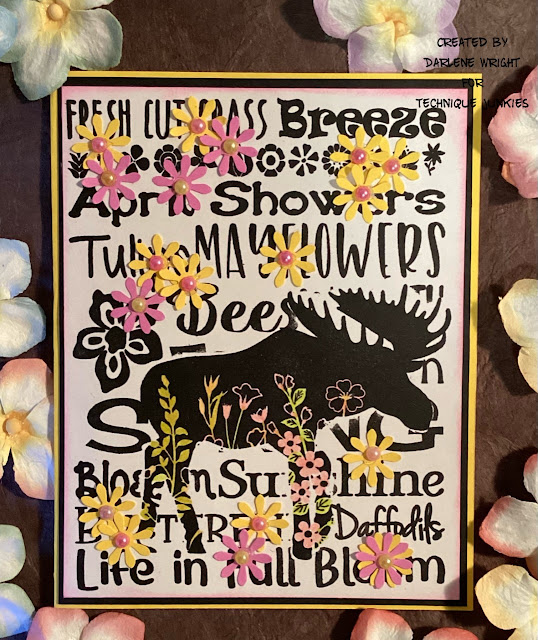 CREATED BY
DARLENE WRIGHT
FOR
TECHNIQUE JUNKIES
FRESH CUT GRASS Breeze
April Showers
Tulips MAYFLOWERS
Bees
Sunshine
Daffodils
Life in Full Bloom